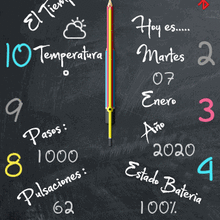 El Tiempo
Hoy es.....
10
Temperatura
°
Martes
2
07
9
Enero
3
Pasos:
Año
1000
2020
8
4
Pulsaciones:
Estado Bateria
62
100%